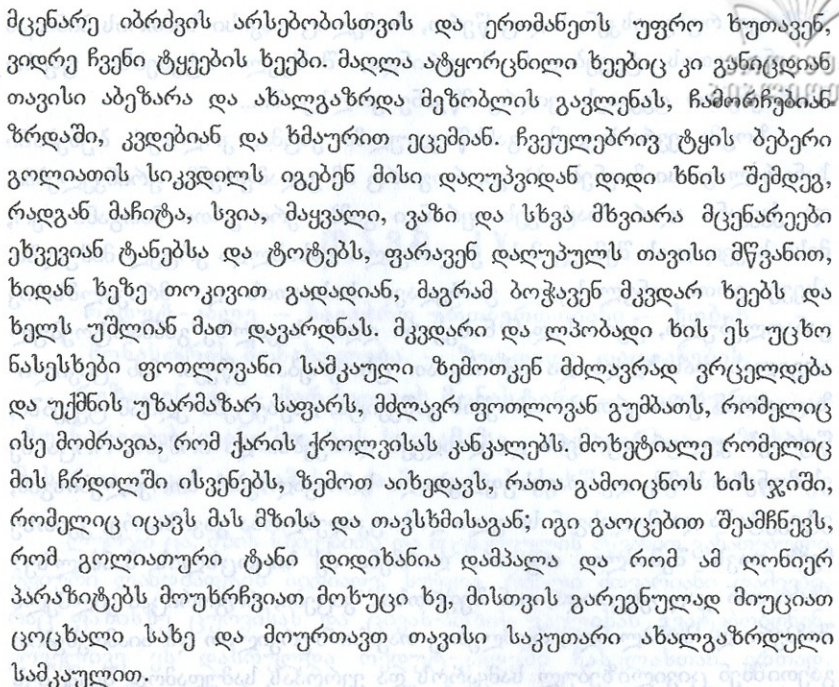 მცენარე იბრძვის არსებობისთვის და ერთმანეთს უფრო ხუთავენ,
ვიდრე ჩვენი ტყეების ხეები. მაღლა ატყორცნილი ხეებიც კი განიცდიან
თავისი აბეზარა და ახალგაზრდა მეზობლის გავლენას, ჩამორჩებიან
ზრდაში, კვდებიან და ხმაურით ეცემიან. ჩვეულებრივ ტყის ბებერი
გოლიათის სიკვდილს იგებენ მისი დაღუპვიდან დიდი ხნის შემდეგ,
რადგან მაჩიტა, სვია, მაყვალი, ვაზი და სხვა მხვიარა მცენარეები
ეხვევიან ტანებსა და ტოტებს, ფარავენ დაღუპულს თავისი მწვანით,
ხიდან ხეზე თოკივით გადადიან, მაგრამ ბოჭავენ მკვდარ ხეებს და
ხელს უშლიან მათ დავარდნას. მკვდარი და ლპობადი ხის ეს უცხო
ნასესხები ფოთლოვანი სამკაული ზემოთკენ მძლავრად ვრცელდება
და უქმნის უზარმაზარ საფარს, მძლავრ ფოთლოვან გუმბათს, რომელიც
ისე მოძრავია, რომ ქარის ქროლვისას კანკალებს. მოხეტიალე რომელიც
მის ჩრდილში ისვენებს, ზემოთ აიხედავს, რათა გამოიცნოს ხის ჯიში,
რომელიც იცავს მას მზისა და თავსხმისაგან; იგი გაოცებით შეამჩნევს,
რომ გოლიათური ტანი დიდიხანია დამპალა და რომ ამ ღონიერ
პარაზიტებს მოუხრჩვიათ მოხუცი ხე, მისთვის გარეგნულად მიუციათ
ცოცხალი სახე და მოურთავთ თავისი საკუთარი ახალგაზრდული
სამკაულით.